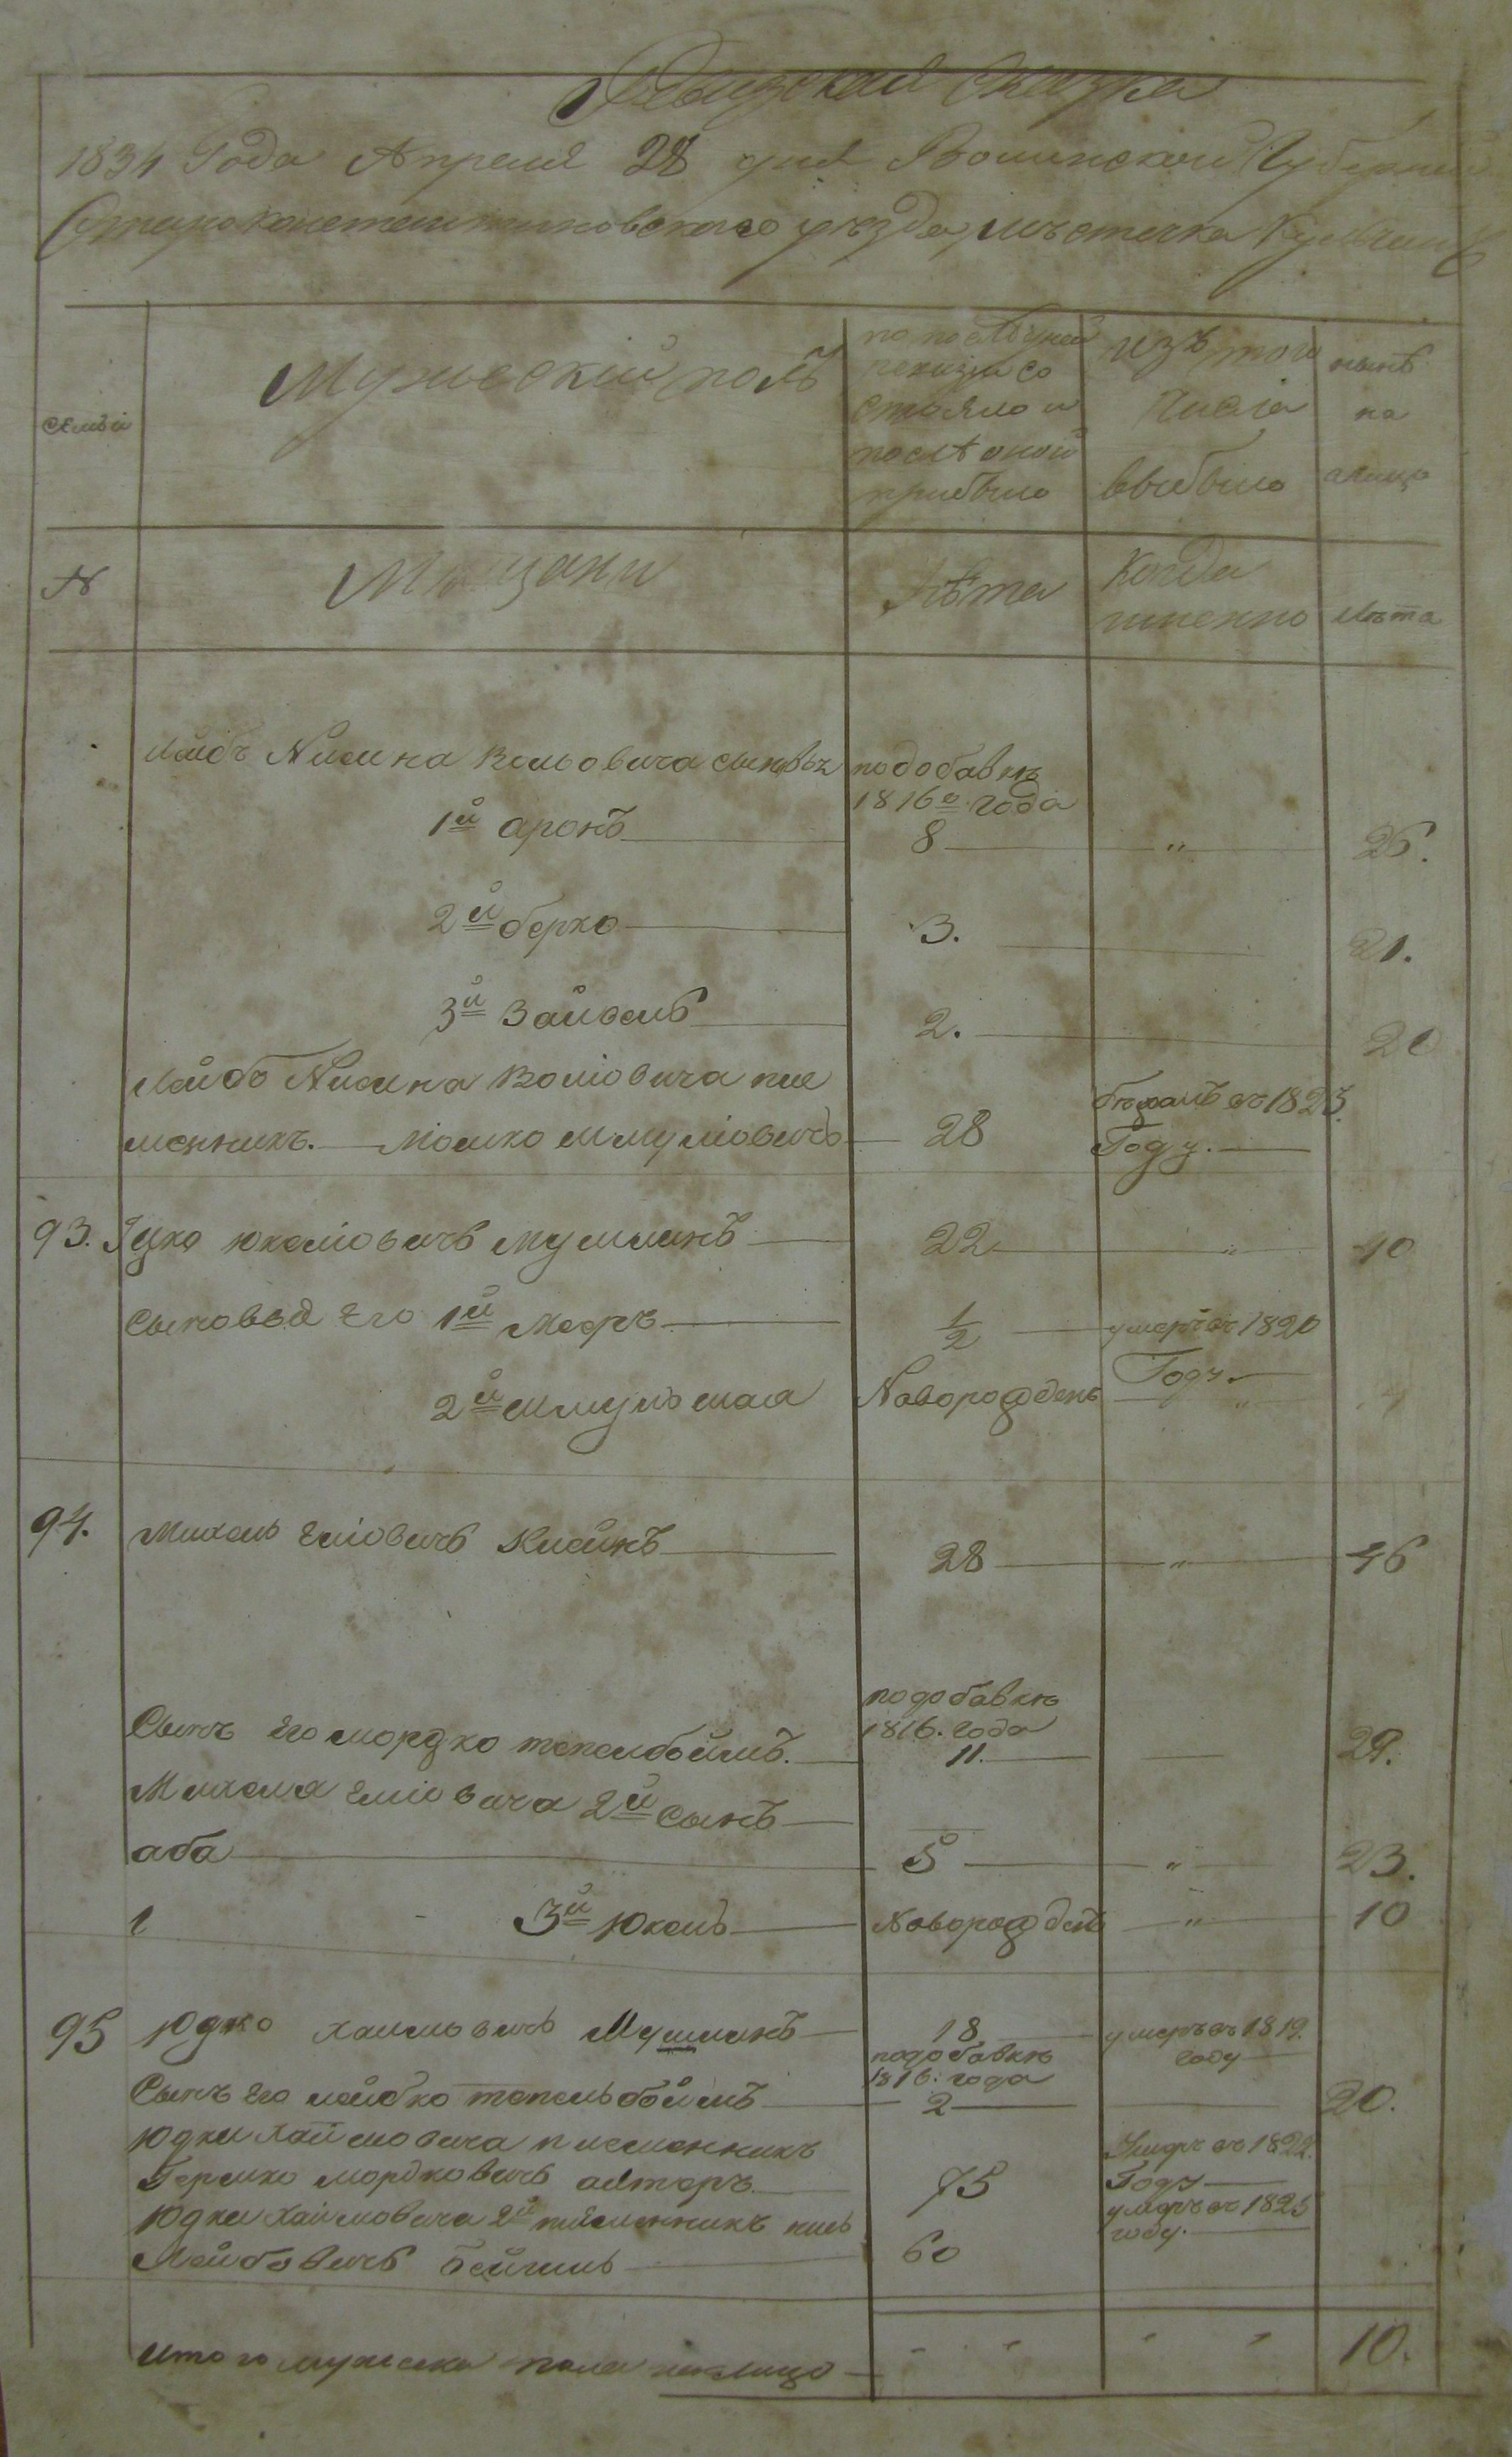 Ревизская Сказка
1834 Года Апреля 28 дня Волынской Губернии
Староконстантиновского уѣзда, мѣстечка Кульчин
семьи
Мужескій полъ
по послѣдней ревизіи состояло и послѣ оной прибыло
изъ того числа выбыло
нынѣ на лицо
N
Мѣщани
Лѣта
Когда именно
Лѣта
Лейбъ Нисина Вольовича сыновья
по добавкѣ 1816о года
1й аронъ 8 " 26.
2й берко 3. 21.
3й Зайвель 2. 20
Лейбъ Нисина Воліовича пле
менникъ. Мошко Шмуліовичъ 28 бѣжалъ въ 1823 Году.
93. Іцко юкеліовичъ Мушлинъ 22 " 40
Сыновья Его 1й Мееръ 1/2 умеръ въ 1820 Году.
2й Шмуль Новорожденъ "
94. Михель Еліовичъ Клейнъ 28 " 46
по добавкѣ 1816. года
Сынъ Его мордко тепелбоймъ. 11. 29.
Михеля Еліовича 2й Сынъ
аба 5 " 23.
3й Юкель Новорожденъ " 10
95 Юдко Хаимовичъ Мушлинъ 18 умеръ въ 1819. году
по добавкѣ 1816. года
Сынъ Его лейбко тепельбоймъ 2 20.
Юдки Хаимовича племенникъ
Гершко мордковичъ алтеръ 45 Умеръ въ 1822. Году
Юдки Хаимовича 2й племенникъ
Лейбовичъ бейгиль 60 умеръ въ 1825 году.
Итого мужеска пола налицо 10.